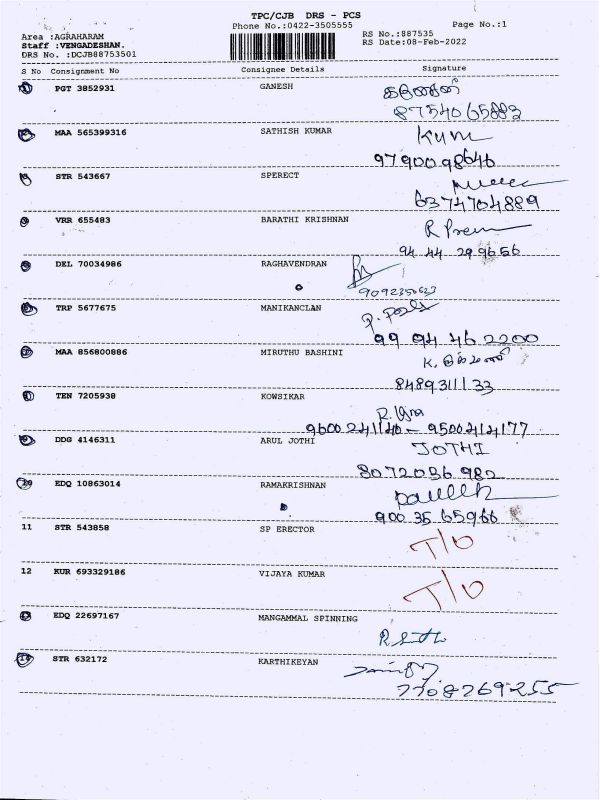 TPC/CJB DRS - PCS
Phone No.:0422-3505555 Page No.:1
Area :AGRAHARAM RS No.:887535
Staff :VENGADESHAN. RS Date:08-Feb-2022
DRS No. :DCJB88753501
S No Consignment No Consignee Details Signature
PGT 3852931 GANESH
8754065883
MAA 565399316 SATHISH KUMAR Kum
9790098646
STR 543667 SPERECT
6374704889
VRR 655483 BARATHI KRISHNAN R Prem
94 44 29 96 56
DEL 70034986 RAGHAVENDRAN
9092350623
TRP 5677675 MANIKANCLAN
99 94 46 2200
MAA 856800886 MIRUTHU BASHINI K.
8489311133
TEN 7205938 KOWSIKAR
9600241140 - 9500414177
DDG 4146311 ARUL JOTHI JOTHI
8072036 982
10 EDQ 10863014 RAMAKRISHNAN
900 35 65966
11 STR 543858 SP ERECTOR T/O
12 KUR 693329186 VIJAYA KUMAR T/O
EDQ 22697167 MANGAMMAL SPINNING
14 STR 632172 KARTHIKEYAN
7708769255